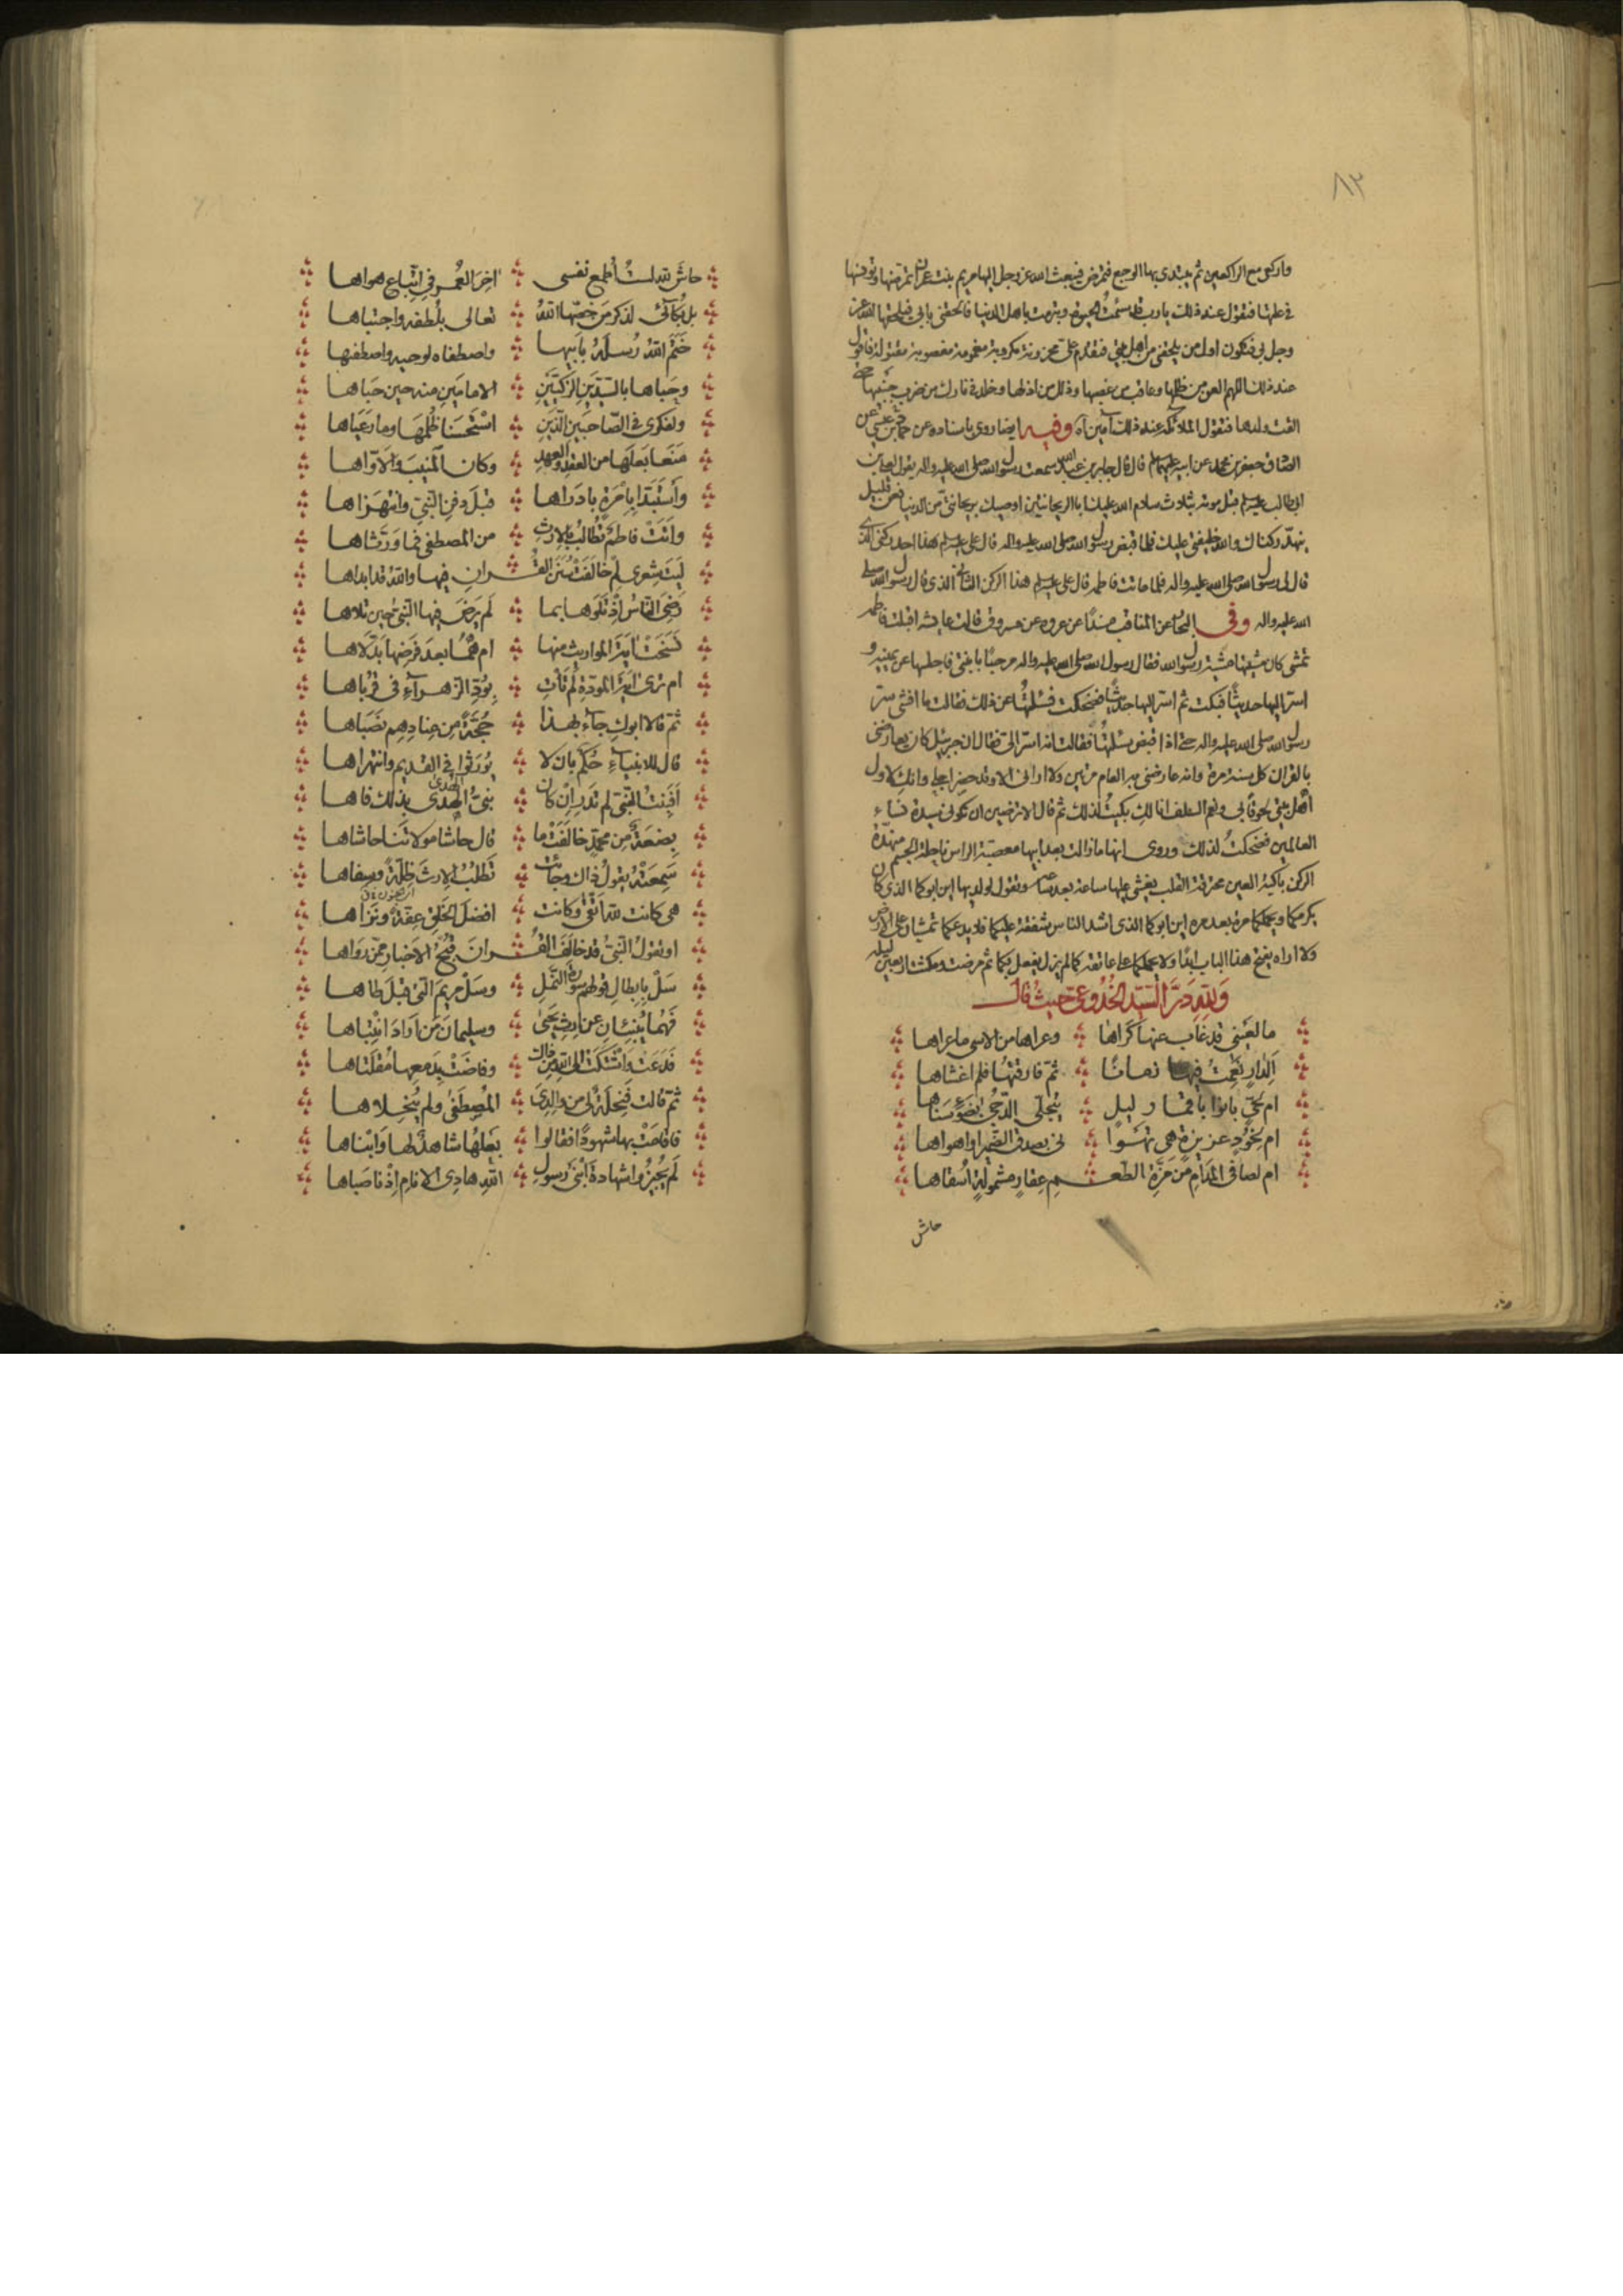 ٨٣
واركعی مع الراكعین ثم یبتدی بها الوجع فتمرض فیبعث الله عز وجل الیها مریم بنت عمران تمرضها وتونسها
فی علتها فتقول عند ذلك یا رب قد سئمت الحیوة وتبرمت باهل الدنیا فالحقنی بابی فیلحقها الله عز
وجل بی فتكون اول من یلحقنی من اهل بیتی فتقدم علی محزونة مكروبة مغمومة مغصوبة مقتولة فاقول
عند ذلك اللهم العن من ظلمها وعاقب من غصبها وذلل من اذلها وخلد فی نارك من ضرب جنبیها حتی
القت ولدها فتقول الملائكة عند ذلك آمین آه وفیه ایضا روی باسناده عن حماد بن عیسی عن
الصادق جعفر بن محمد عن ابیه علیهما السلم قال قال جابر بن عبد الله سمعت رسول الله صلی الله علیه واله یقول لعلی بن
ابی طالب علیه السلم قبل موته بثلاث سلام الله علیك یا ابا الریحانتین اوصیك بریحانتی من الدنیا فعن قلیل
ینهد ركناك والله خلیفتی علیك فلما قبض رسول الله صلی الله علیه واله قال علی علیه السلم هذا احد ركنی الذی
قال لی رسول الله صلی الله علیه واله فلما ماتت فاطمه قال علی علیه السلم هذا الركن الثانی الذی قال رسول الله صلی
الله علیه واله وفی البحار عن المناقب مسندًا عن عروه عن مسروق قالت عایشه اقبلت فاطمه
تمشی كان مشیتها مشیة رسول الله فقال رسول الله صلی الله علیه واله مرحبًا بابنتی فاجلسها عن یمینه و
اسر الیها حدیثًا فبكت ثم اسر الیها حدیثًا فضحكت فسئلتُها عن ذلك فقالت ما افشی سر
رسول الله صلی الله علیه واله حتی اذا قبض سئلتُها فقالت انه اسر الی فقال ان جبرئیل كان یعارضنی
بالقران كل سنة مرة وانه عارضنی به العام مرتین ولا ارانی الا وقد حضر اجلی وانك لاول
اهل بیتی لحوقا بی ونعم السلف انا لك بكیتُ لذلك ثم قال الا ترضین ان تكونی سیدة نساء
العالمین فضحكتُ لذلك وروی انها ما زالت بعد ابیها معصبة الراس ناحلة الجسم منهدّة
الركن باكیة العین محترقة القلب یغشی علیها ساعة بعد ساعة وتقول لولدیها این ابوكما الذی كان
یكرمكما ویحملكما مرة بعد مره این ابوكما الذی اشد الناس شفقة علیكما فلا یدعكما تمشیان علی الارض
ولا اراه یفتح هذا الباب ابدًا ولا یحملكما علی عاتقه كما لم یزل یفعل بكما ثم مرضت ومكثت اربعین لیله
وَلِلّهِ دَرُّ السَّیّدِ الجُذُوعی حیثُ قال
ما لعَینی قد غاب عنها كَراها وعراها من الاسی ما عراها
اَلِدارٍ نَعِمتُ فیها زمانًا ثمّ فارقتُها فلم اغشاها
ام لحَیٍّ بانوا باقمار لیلٍ یتجلّی الدّجی بضَوءِ سَناها
ام لخَوْدٍ عزیزةٍ هی تهوا نی بصدق الضمیر او اهواها
ام لصافی المدامِ من مَزَّةِ الطعم عقارٍ مشمولةٍ اُسقاها
حاش
حاشَ لله لستُ اُطمع نفسی اخِرَ العُمر فی اتّباع هواها
بل بُكآئی لذكر مَن خَصّها اللهُ تعالی بلُطفه واجتباها
خَتَمَ اللهُ رُسلَهُ بابیها واصطفاه لوحیه واصطفیها
وحَباها بالسَیّدَینِ الزكیّیَنِ الامامَینِ منه حین حَباها
ولفكری فی الصّاحبَین الّذَینِ استحسَنا ظُلمَها وما رَعَیاها
مَنَعا بَعلَها من العقدِ والعهدِ وكان المنیبَ والاوّاها
واستَبَدّا بامرَةٍ بادَراها قبلَ دفنِ النّبیِّ وانتهزاها
وأتَتْ فاطمٌ تُطالبُ بالارثِ من المصطفی فما ورّثاها
لَیتَ شعری لِمْ خالفَتْ سُنَنَ القُرانِ فیها والله قد ابداها
رَضیَ النّاسُ اِذْ تَلَوها بما لم یرضَ فیها النّبیُّ حین تلاها
نُسخَتْ ایةُ المواریث منها ام هُمُا بعدَ فَرضِها بَدّلاها
ام تری ایةَ المودّةِ لم تأتِ بوُدِّ الزّهراءِ فی قرباها
ثمّ قالا ابوكِ جآءَ بهذا حُجّةً من عنادهِم نَصَباها
قال للانبیاءِ حُكمٌ بان لا یورَثوا فی القدیم وانتهراها
اَفَبِنتُ النّبیِّ لم تَدرِ اِن كان نبیُّ الهُدی بذلك فاها
بضعةٌ من محمّدٍ خالَفَتْ ما قال حاشا مولاتَنا حاشاها
سَمِعَتْهُ یقولُ ذاك وجائت تَطلُبُ الارثَ ضِلّةً وسفاها
هی كانت لله أتقی وكانت افضلَ الخَلقِ عِفّةً ونزاها
او تقولُ النّبیُّ قد خالَفَ القُرانَ قُبحُ الاخبار ممّن رواها
سَلْ بابطالِ قولهم سورةَ النّملِ وسَلْ مریمَ الّتی قبلَ طاها
فَهُما یُنبِئانِ عن اِرثِ یَحیی وسلیمانَ مَن اَرادَ انتِباها
فَدَعتْ وَاشتَكتْ الی الله من ذاك وفاضَتْ بدَمعِها مُقلَتاها
ثمّ قالت فنِحلَةٌ لی من والِدیَ المُصطَفی ولم یُنحِلاها
فاقامَتْ بها شهودًا فقالوا بَعلُها شاهدٌ لها وَابناها
لَم یُجیزوا شهادةَ ابنَی رسولِ اللهِ هادِی الانامِ اِذْ ناصَباها